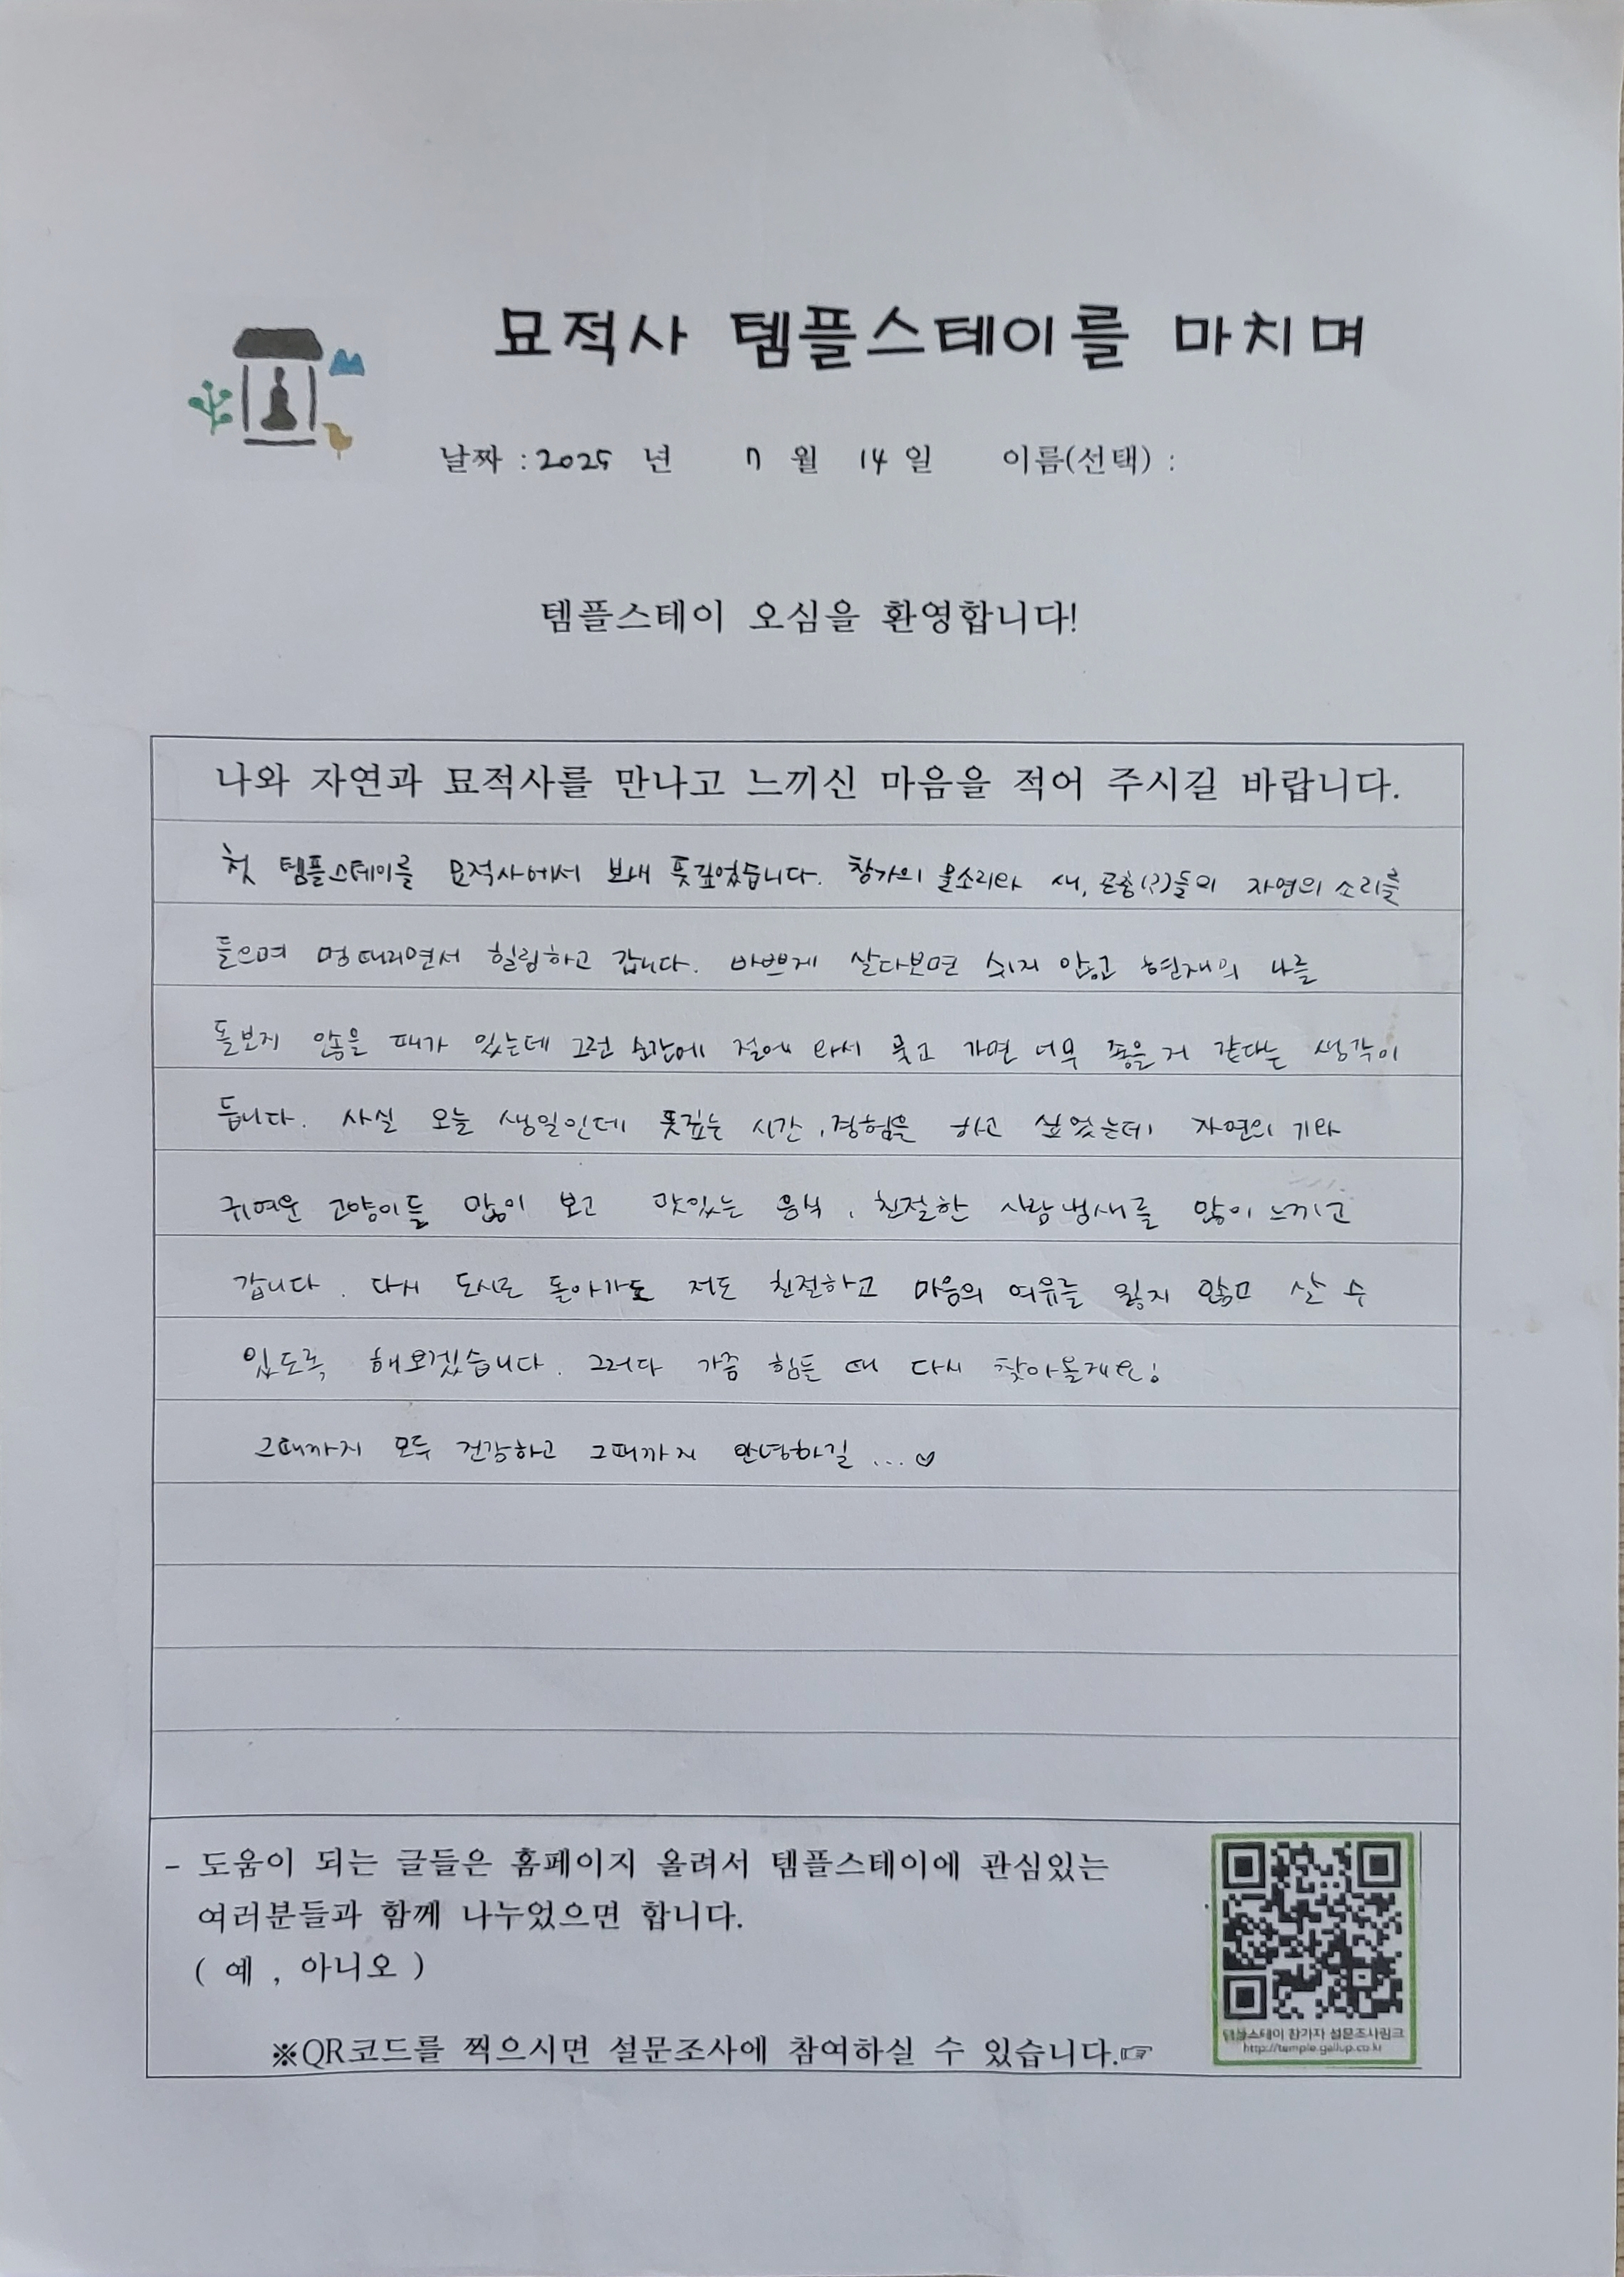 묘적사 템플스테이를 마치며
날짜 : 2025 년 7 월 14 일 이름(선택) :
템플스테이 오심을 환영합니다!
나와 자연과 묘적사를 만나고 느끼신 마음을 적어 주시길 바랍니다.
첫 템플스테이를 묘적사에서 보내 뜻깊었습니다. 창가의 물소리와 새, 곤충(?)들의 자연의 소리를
들으며 멍때리면서 힐링하고 갑니다. 바쁘게 살다보면 쉬지 않고 현재의 나를
돌보지 않을 때가 있는데 그런 순간에 절에 와서 묵고 가면 너무 좋을 거 같다는 생각이
듭니다. 사실 오늘 생일인데 뜻깊는 시간, 경험을 하고 싶었는데 자연의 기와
귀여운 고양이들 많이 보고 맛있는 음식, 친절한 사람냄새를 많이 느끼고
갑니다. 다시 도시로 돌아가도 저도 친절하고 마음의 여유를 잃지 않고 살 수
있도록 해보겠습니다. 그러다 가끔 힘들 때 다시 찾아올게요!
그때까지 모두 건강하고 그때까지 안녕하길 ...♡
- 도움이 되는 글들은 홈페이지 올려서 템플스테이에 관심있는
여러분들과 함께 나누었으면 합니다.
( 예 , 아니오 )
※QR코드를 찍으시면 설문조사에 참여하실 수 있습니다.☞
템플스테이 참가자 설문조사링크
http://temple.gallup.co.kr